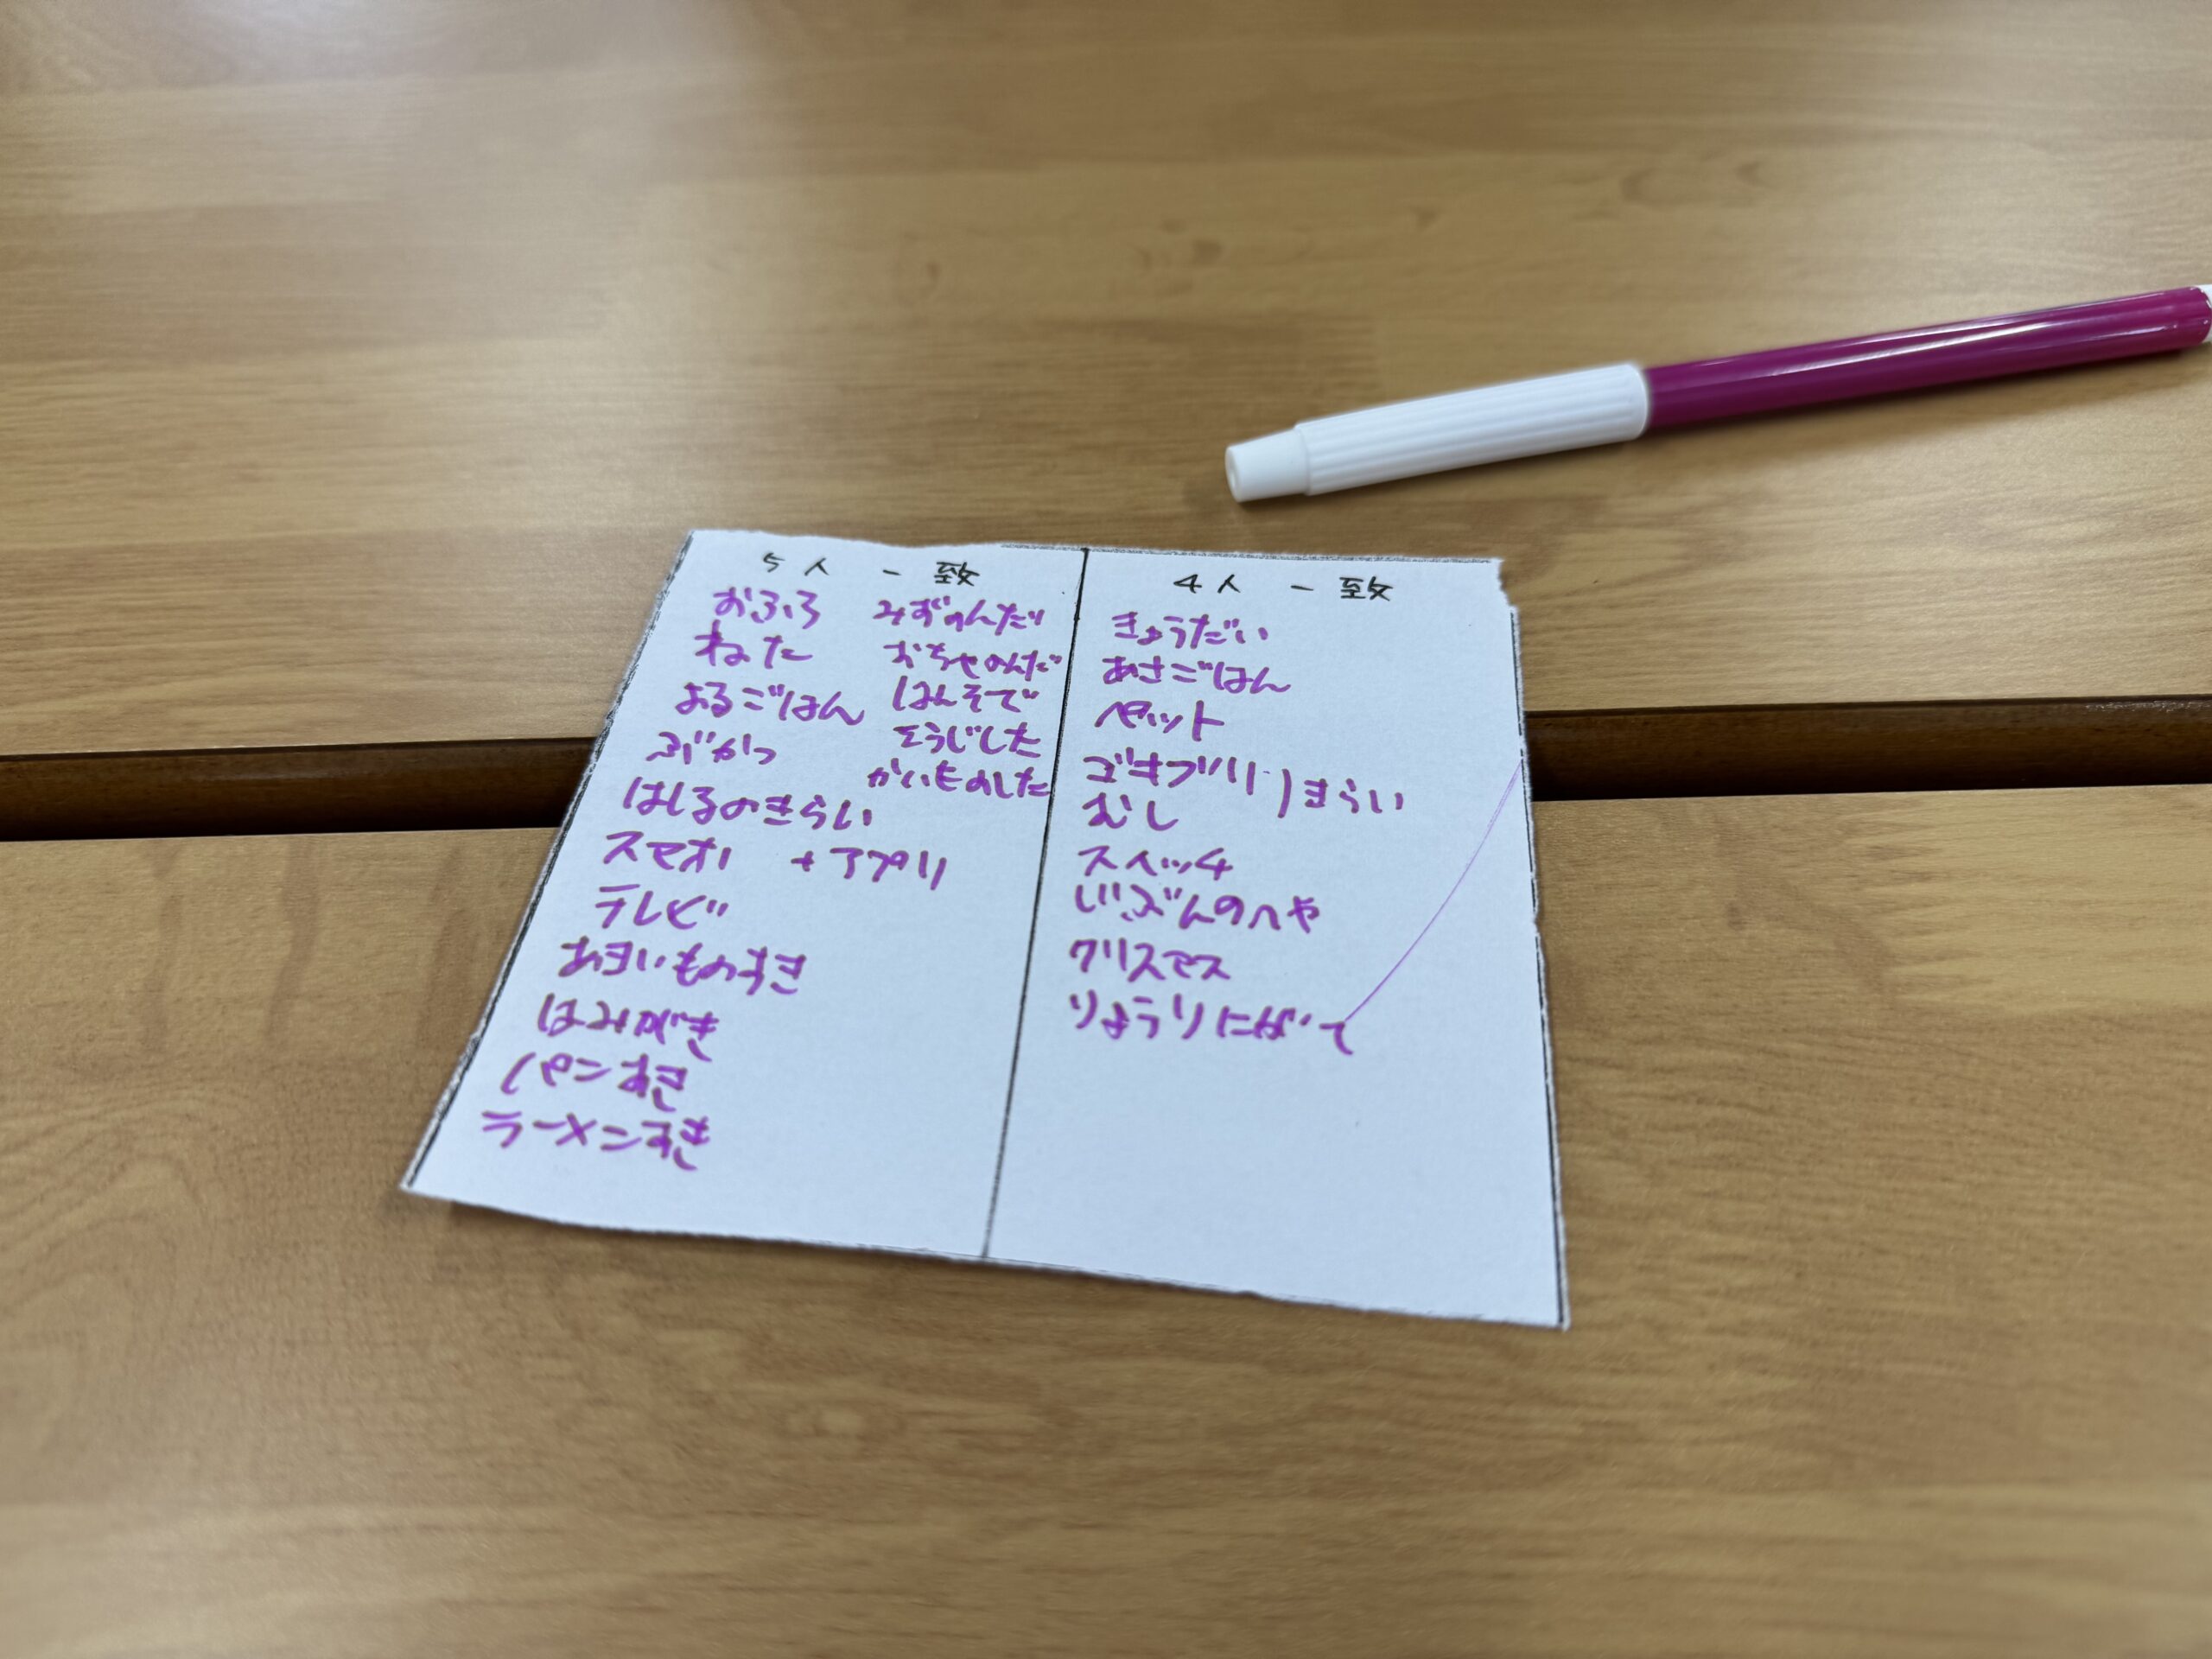 5人 一致
おふろ
ねた
よるごはん
ぶかつ
はしるのきらい
スマホ +アプリ
テレビ
あまいものすき
はみがき
パンすき
ラーメンすき
みずのんだ
おちゃのんだ
はんそで
そうじした
かいものした
4人 一致
きょうだい
あさごはん
ペット
ゴキブリ
むし
きらい
スイッチ
じぶんのへや
クリスマス
りょうりにがて